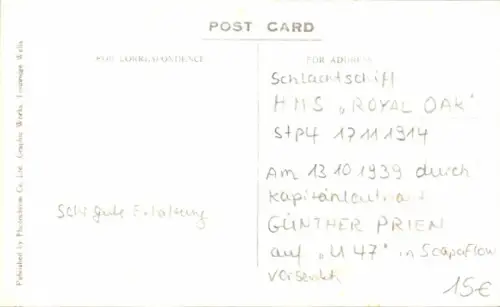 POST CARD
FOR CORRESPONDENCE
FOR ADDRESS
Published by Photochrom Co. Ltd. Graphic Works, Tunbridge Wells
Sehr gute Erhaltung
Schlachtschiff
HMS „ROYAL OAK"
Stpl 17 11 1914
Am 13 10 1939 durch
Kapitänleutnant
GÜNTHER PRIEN
auf „U 47" in Scapaflow
versenkt
15€